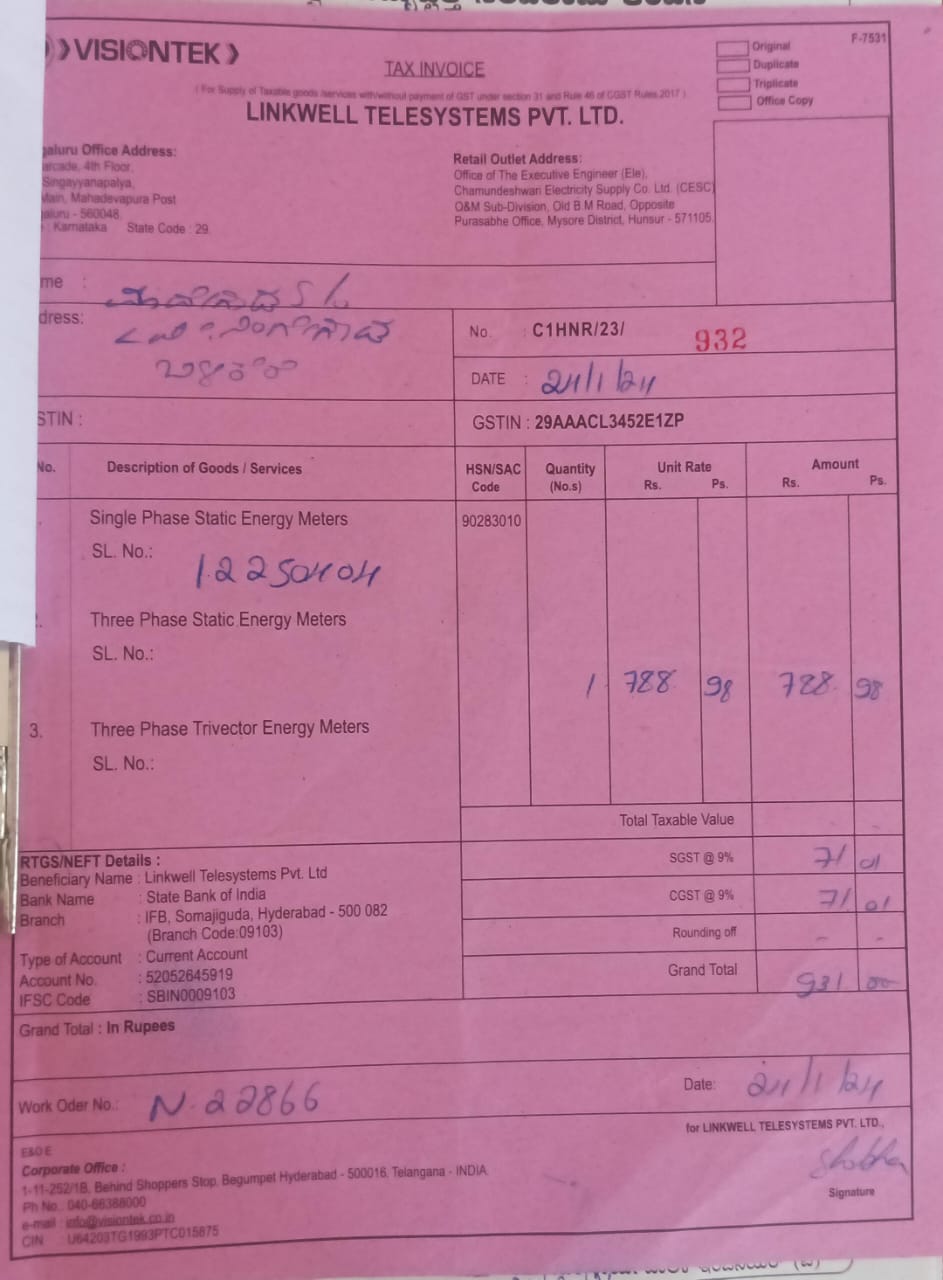 VISIONTEK
F-7531
TAX INVOICE
Original
Duplicate
Triplicate
Office Copy
( For Supply of Taxable goods /services with/without payment of GST under section 31 and Rule 46 of CGST Rules 2017 )
LINKWELL TELESYSTEMS PVT. LTD.
galuru Office Address:
arcade, 4th Floor,
Singayyanapalya,
Main, Mahadevapura Post
galuru - 560048,
: Karnataka State Code : 29
Retail Outlet Address:
Office of The Executive Engineer (Ele),
Chamundeshwari Electricity Supply Co. Ltd. (CESC)
O&M Sub-Division, Old B.M Road, Opposite
Purasabhe Office, Mysore District, Hunsur - 571105.
me :
dress:
No. : C1HNR/23/ 932
DATE : 24/1/24
STIN :
GSTIN : 29AAACL3452E1ZP
No. Description of Goods / Services HSN/SAC Code Quantity (No.s) Unit Rate Rs. Ps. Amount Rs. Ps.
Single Phase Static Energy Meters 90283010
SL. No.: 12250404
2. Three Phase Static Energy Meters
SL. No.:
1 788 98 788 98
3. Three Phase Trivector Energy Meters
SL. No.:
Total Taxable Value
SGST @ 9% 71 01
CGST @ 9% 71 01
Rounding off - -
Grand Total 931 00
RTGS/NEFT Details :
Beneficiary Name : Linkwell Telesystems Pvt. Ltd
Bank Name : State Bank of India
Branch : IFB, Somajiguda, Hyderabad - 500 082
(Branch Code:09103)
Type of Account : Current Account
Account No. : 52052645919
IFSC Code : SBIN0009103
Grand Total : In Rupees
Work Oder No.: N-22866
Date: 24/1/24
for LINKWELL TELESYSTEMS PVT. LTD.,
Shobha
Signature
E&O E
Corporate Office :
1-11-252/1B, Behind Shoppers Stop, Begumpet Hyderabad - 500016, Telangana - INDIA
Ph No.: 040-66388000
e-mail : info@visiontek.co.in
CIN : U64203TG1993PTC015875